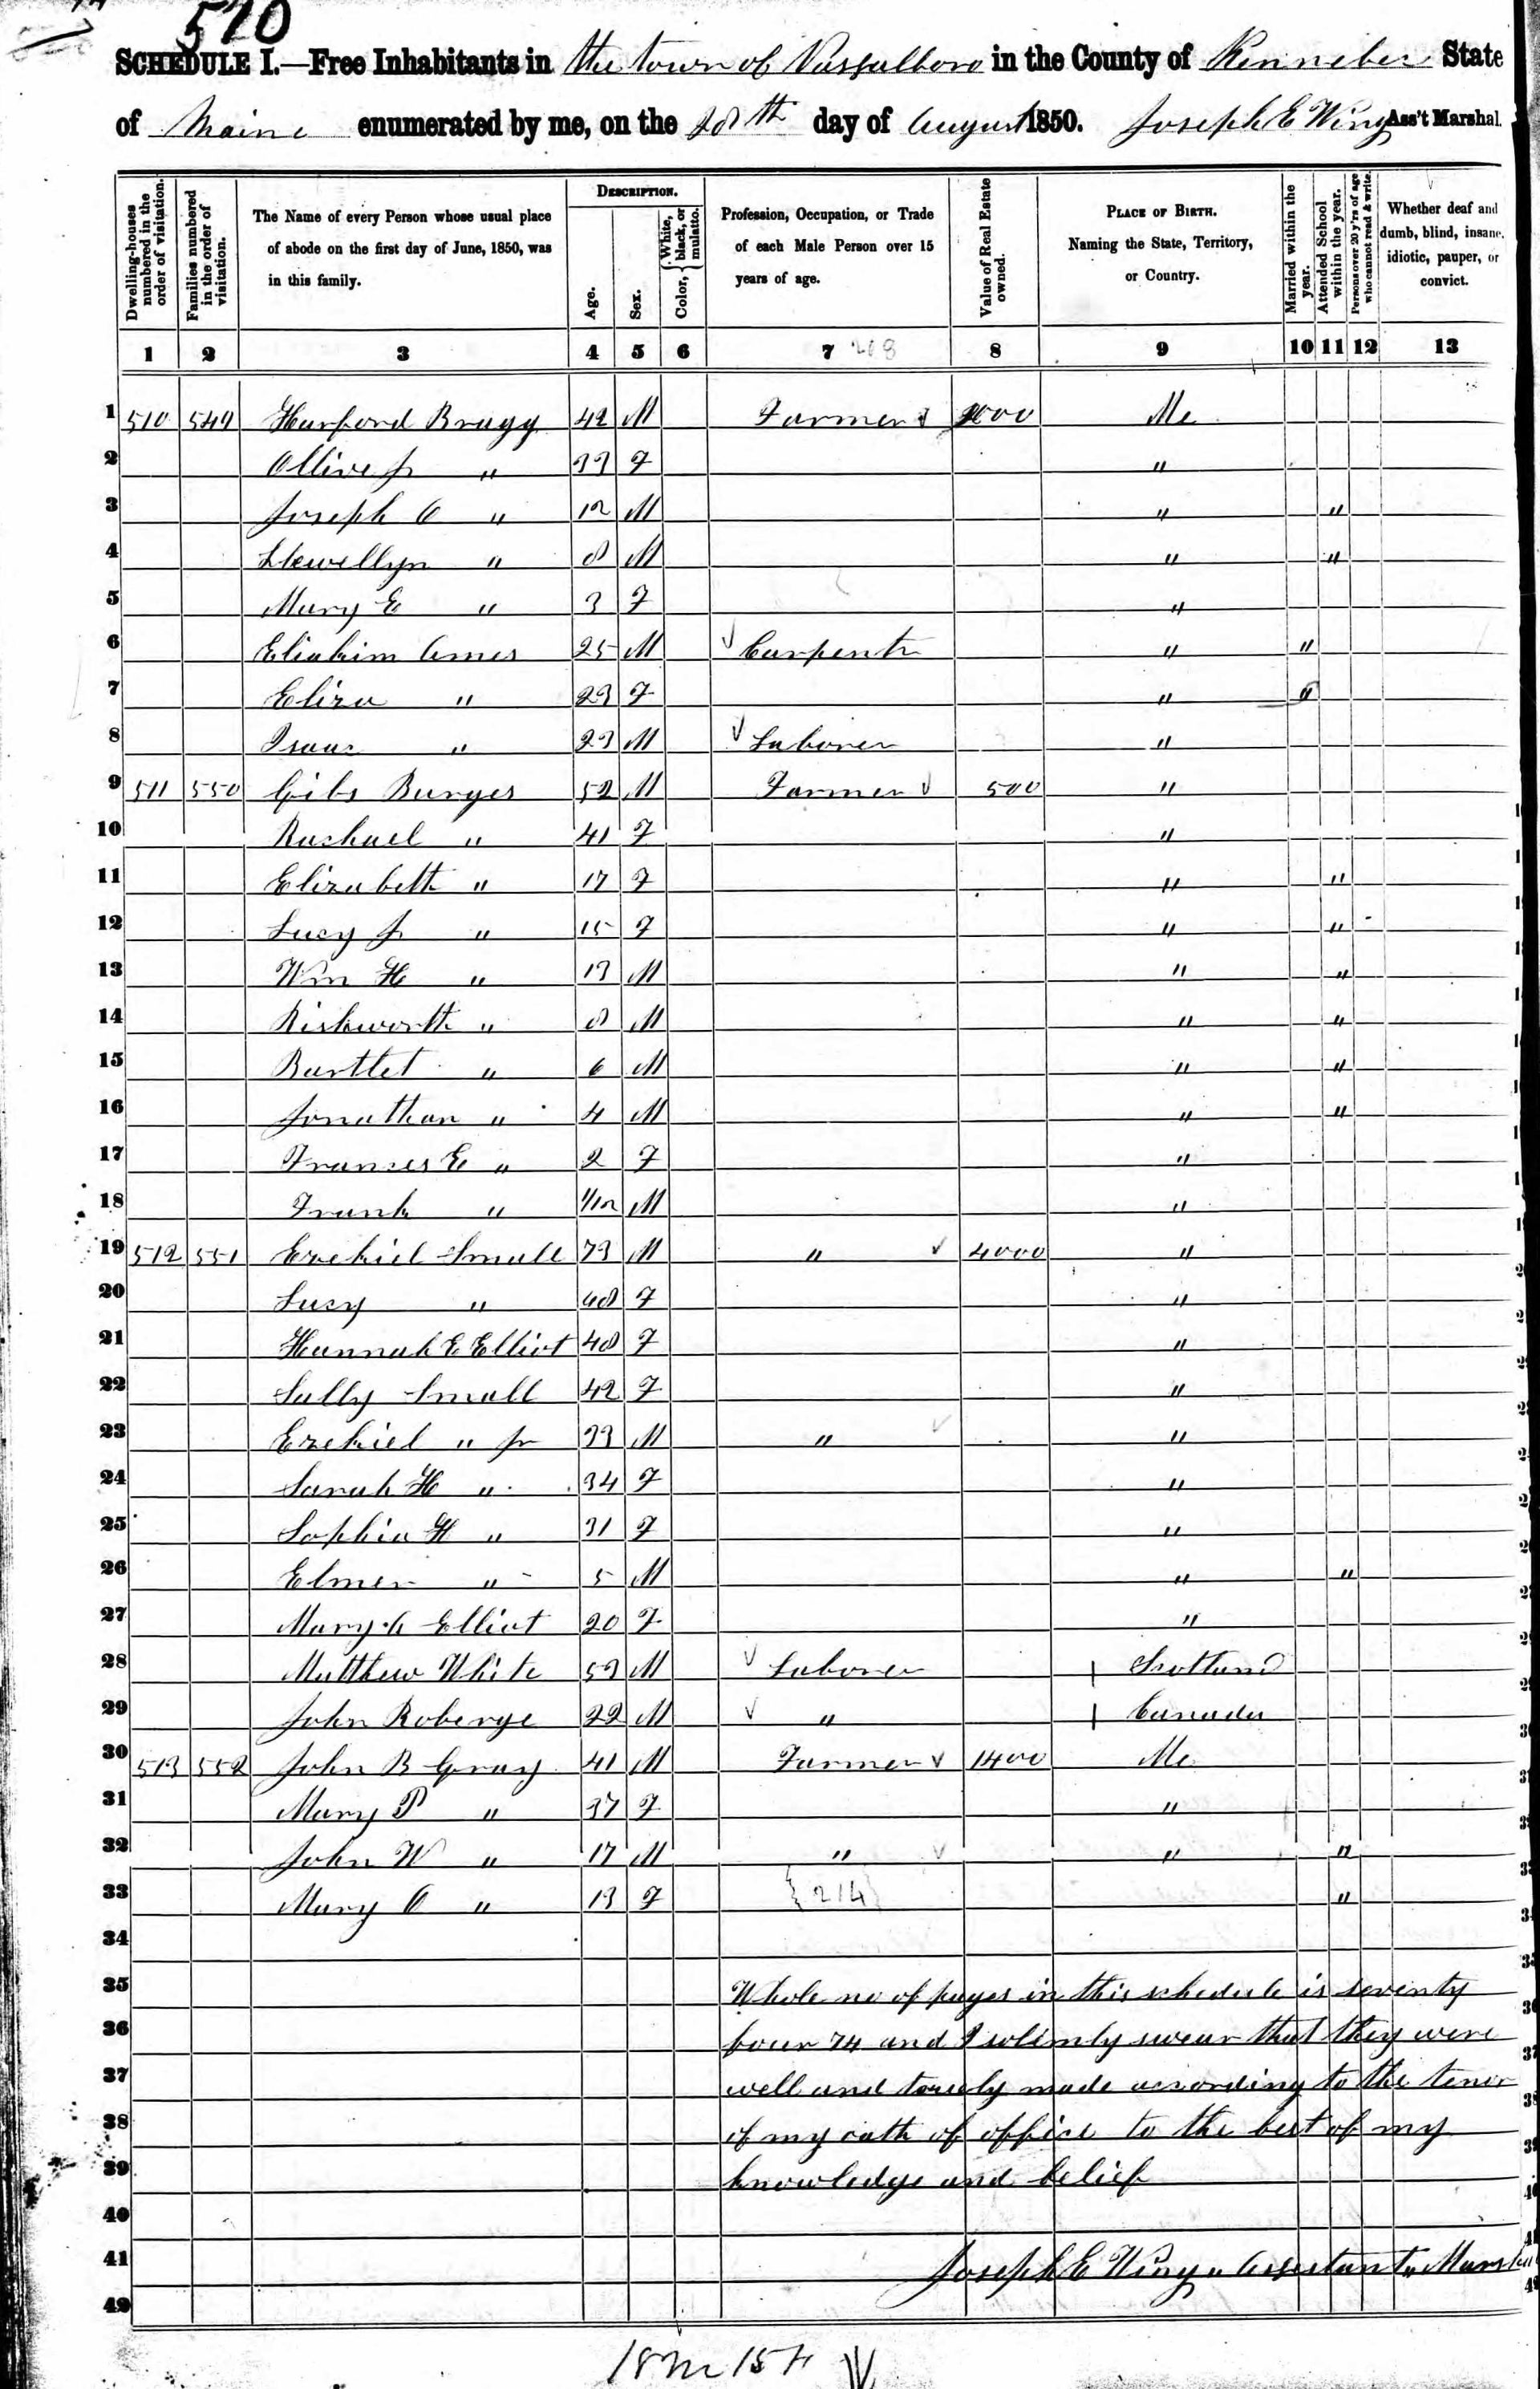 570
SCHEDULE I.—Free Inhabitants in the town of Vassalboro in the County of Kennebec State
of Maine enumerated by me, on the 28th day of August 1850. Joseph E Wing Ass't Marshal.
Dwelling-houses numbered in the order of visitation.
Families numbered in the order of visitation.
The Name of every Person whose usual place of abode on the first day of June, 1850, was in this family.
DESCRIPTION.
Age.
Sex.
Color, { White, black, or mulatto.
Profession, Occupation, or Trade of each Male Person over 15 years of age.
Value of Real Estate owned.
PLACE OF BIRTH. Naming the State, Territory, or Country.
Married within the year.
Attended School within the year.
Persons over 20 y'rs of age who cannot read & write.
Whether deaf and dumb, blind, insane, idiotic, pauper, or convict.
1 2 3 4 5 6 7 208 8 9 10 11 12 13
1 510 549 Harford Bragg 42 M Farmer 2000 Me
2 Ollive J " 33 F "
3 Joseph O " 12 M " "
4 Llewellyn " 8 M " "
5 Mary E " 3 F "
6 Eliakim Ames 25 M Carpentr " "
7 Eliza " 23 F " "
8 Isaac " 23 M Laborer "
9 511 550 Gibs Burges 52 M Farmer 500 "
10 Rachael " 41 F "
11 Elizabeth " 17 F " "
12 Lucy J " 15 F " "
13 Wm H " 13 M " "
14 Rishworth " 8 M " "
15 Bartlet " 6 M " "
16 Jonathan " 4 M " "
17 Frances E " 2 F "
18 Frank " 1/12 M "
19 512 551 Ezekiel Small 73 M " 4000 "
20 Lucy " 68 F "
21 Hannah E Elliot 48 F "
22 Sally Small 42 F "
23 Ezekiel " Jr 33 M " "
24 Sarah H " 34 F "
25 Sophia H " 31 F "
26 Elmer " 5 M " "
27 Mary A Elliot 20 F "
28 Matthew White 53 M Laborer Scotland
29 John Roberge 22 M " Canada
30 513 552 John B Gray 41 M Farmer 1400 Me
31 Mary P " 37 F "
32 John W " 17 M " " "
33 Mary O " 13 F {214} "
34
35 Whole no of pages in this schedule is seventy
36 four 74 and I solimly swear that they were
37 well and truely made according to the tenor
38 of my oath of office to the best of my
39 knowledge and belief
40
41 Joseph E Wing " Assistant " Marshal
42
18 m 15 F